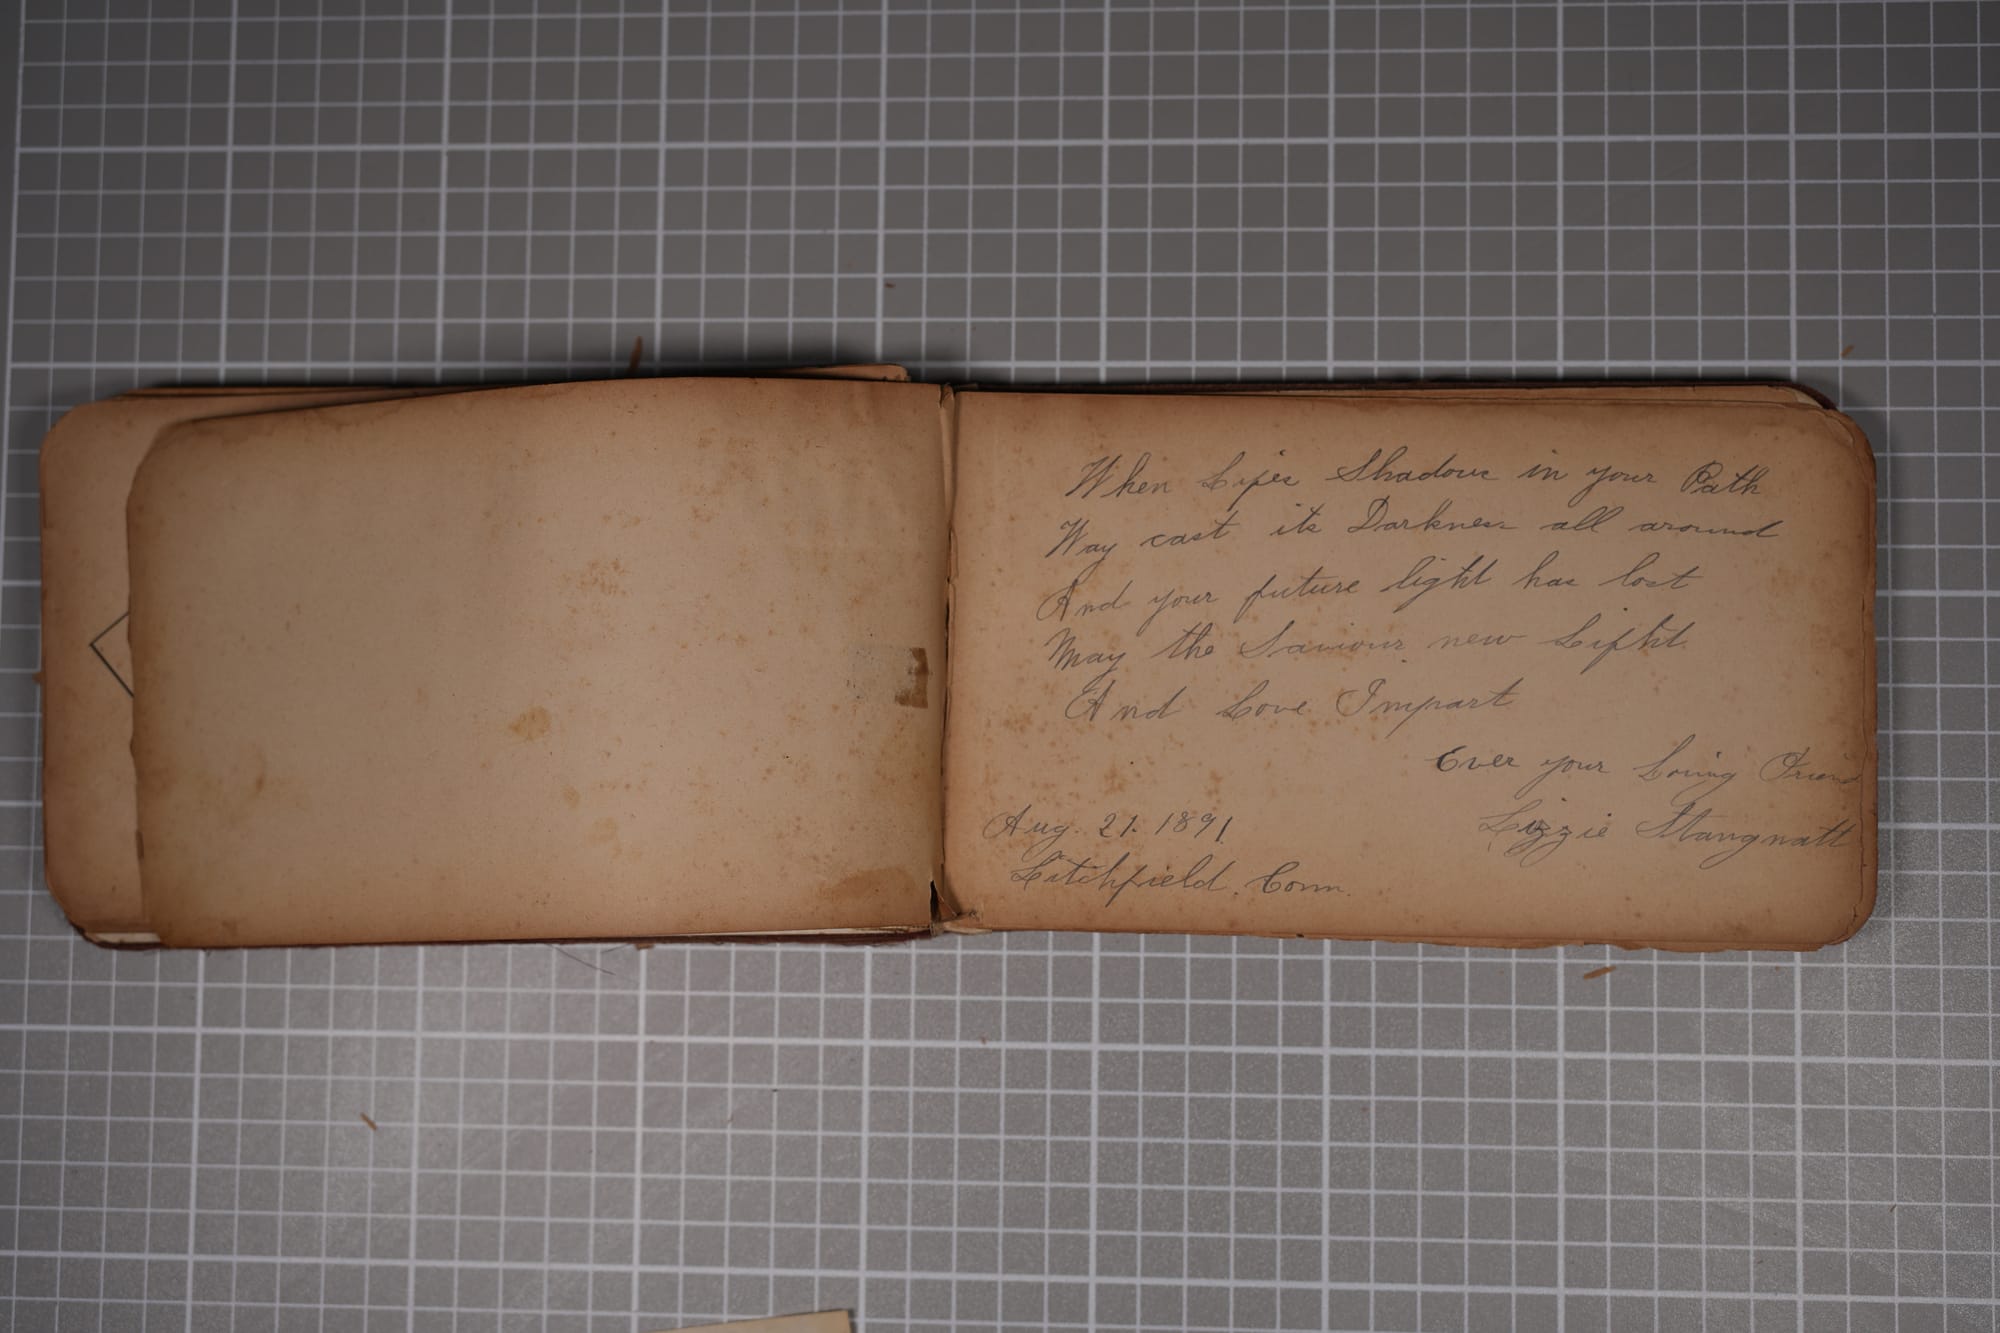 When Lifes Shadows in your Path
Way cast its Darkness all around
And your future light has lost
May the Saviour new Lifht
And Love Impart
Ever your Loving Friend
Aug. 21. 1891.
Lizzie Stangnatt
Litchfield. Conn.